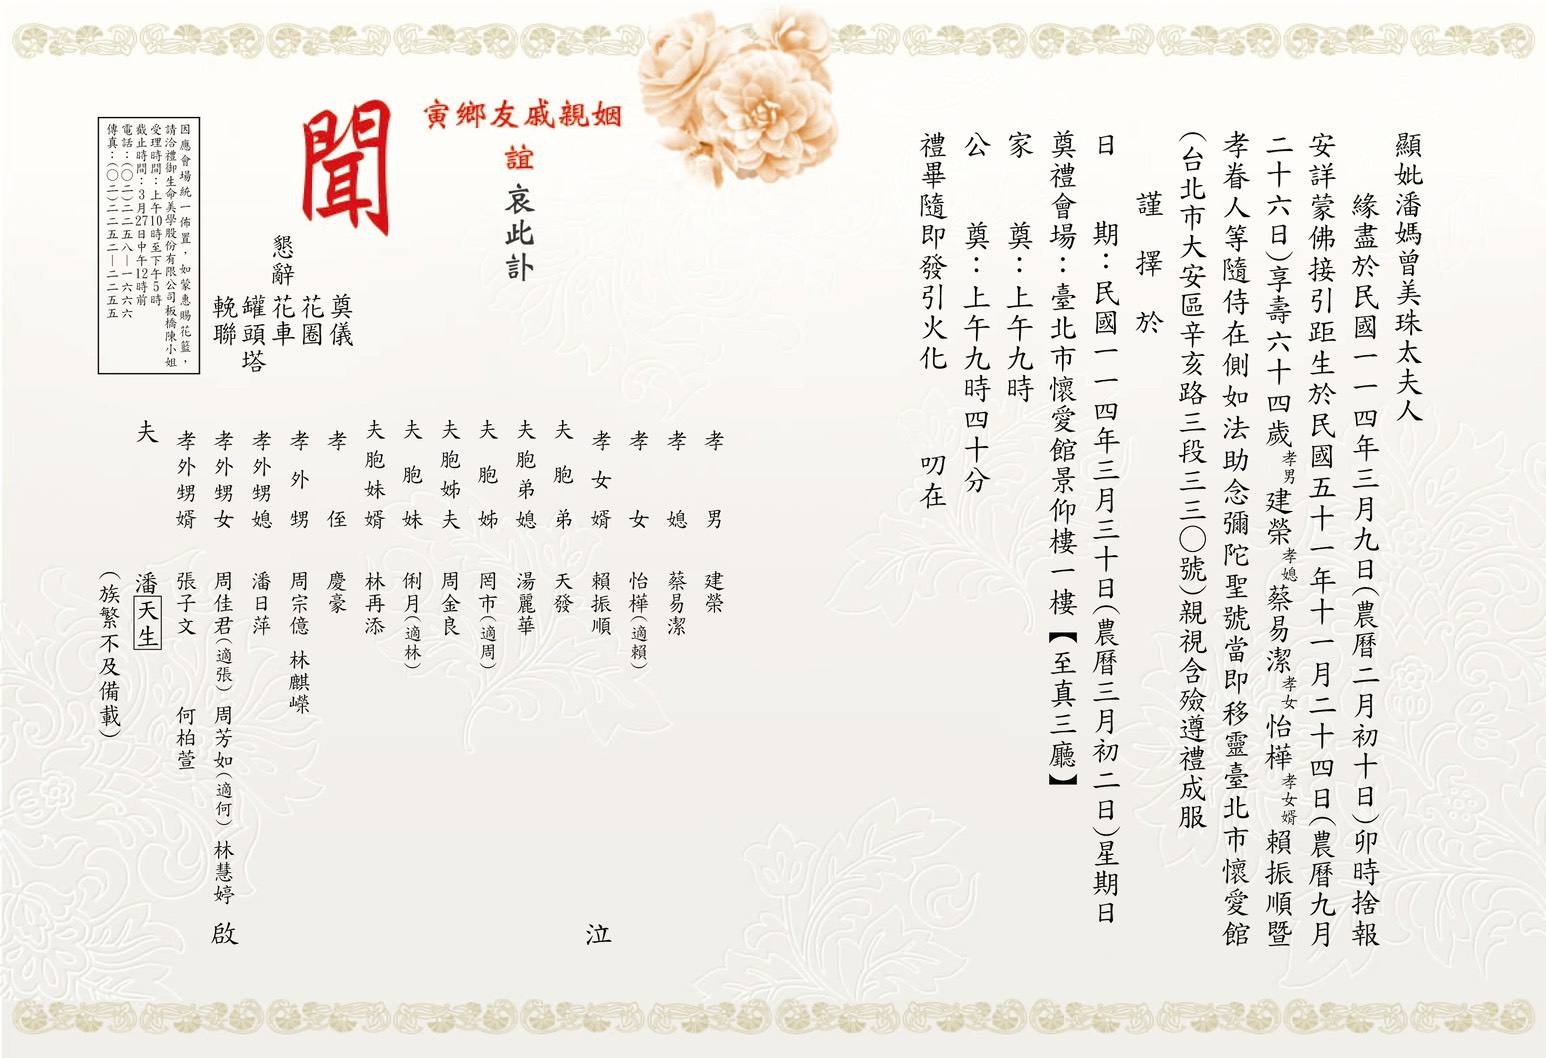 顯妣潘媽曾美珠太夫人
緣盡於民國一一四年三月九日(農曆二月初十日)卯時捨報
安詳蒙佛接引距生於民國五十一年十一月二十四日(農曆九月
二十六日)享壽六十四歲孝男建榮孝媳蔡易潔孝女怡樺孝女婿賴振順暨
孝眷人等隨侍在側如法助念彌陀聖號當即移靈臺北市懷愛館
(台北市大安區辛亥路三段三三〇號)親視含殮遵禮成服
謹擇於
日期：民國一一四年三月三十日(農曆三月初二日)星期日
奠禮會場：臺北市懷愛館景仰樓一樓【至真三廳】
家奠：上午九時
公奠：上午九時四十分
禮畢隨即發引火化 叨在
姻親戚友鄉寅
誼
哀此訃
聞
懇辭
奠儀
花圈
花車
罐頭塔
輓聯
因應會場統一佈置，如蒙惠賜花籃，
請洽禮御生命美學股份有限公司板橋陳小姐
受理時間：上午10時至下午5時
截止時間：3月27日中午12時前
電話：(〇二)二二五八—一六六六
傳真：(〇二)二二五二—二二五五
孝男 建榮
孝媳 蔡易潔
孝女 怡樺(適賴)
孝女婿 賴振順
夫胞弟 天發
夫胞弟媳 湯麗華
夫胞姊 罔市(適周)
夫胞姊夫 周金良
夫胞妹 俐月(適林)
夫胞妹婿 林再添
孝侄 慶豪
孝外甥 周宗億 林麒嶸
孝外甥媳 潘日萍
孝外甥女 周佳君(適張) 周芳如(適何) 林慧婷
孝外甥婿 張子文 何柏萱
夫 潘天生
(族繁不及備載)
泣
啟